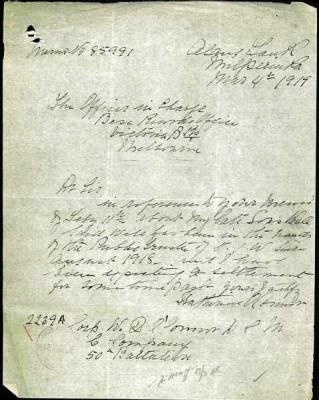 Memo No 85991
Mar 4th 1919
The Officer in Charge
Base Records Office
Victoria Bks
Melbourne
Dr Sir
in reference to yours Memo
of Feby 11th about my late Sons Will
I Will has been in the hands
of the Public Trustee of N S W since
August 1918 and I have
been expecting a settlement
for some time past yours Truly
O'Connor
2239A Corp W. D. O'Connor D C M
C Company
50th Battalion